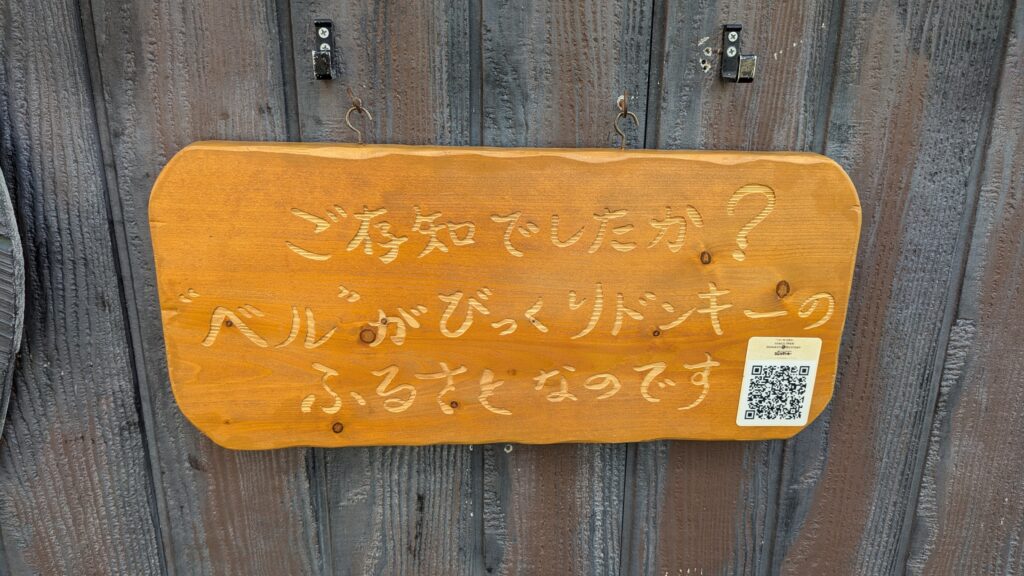 ご存知でしたか?
"ベル"がびっくりドンキーの
ふるさとなのです